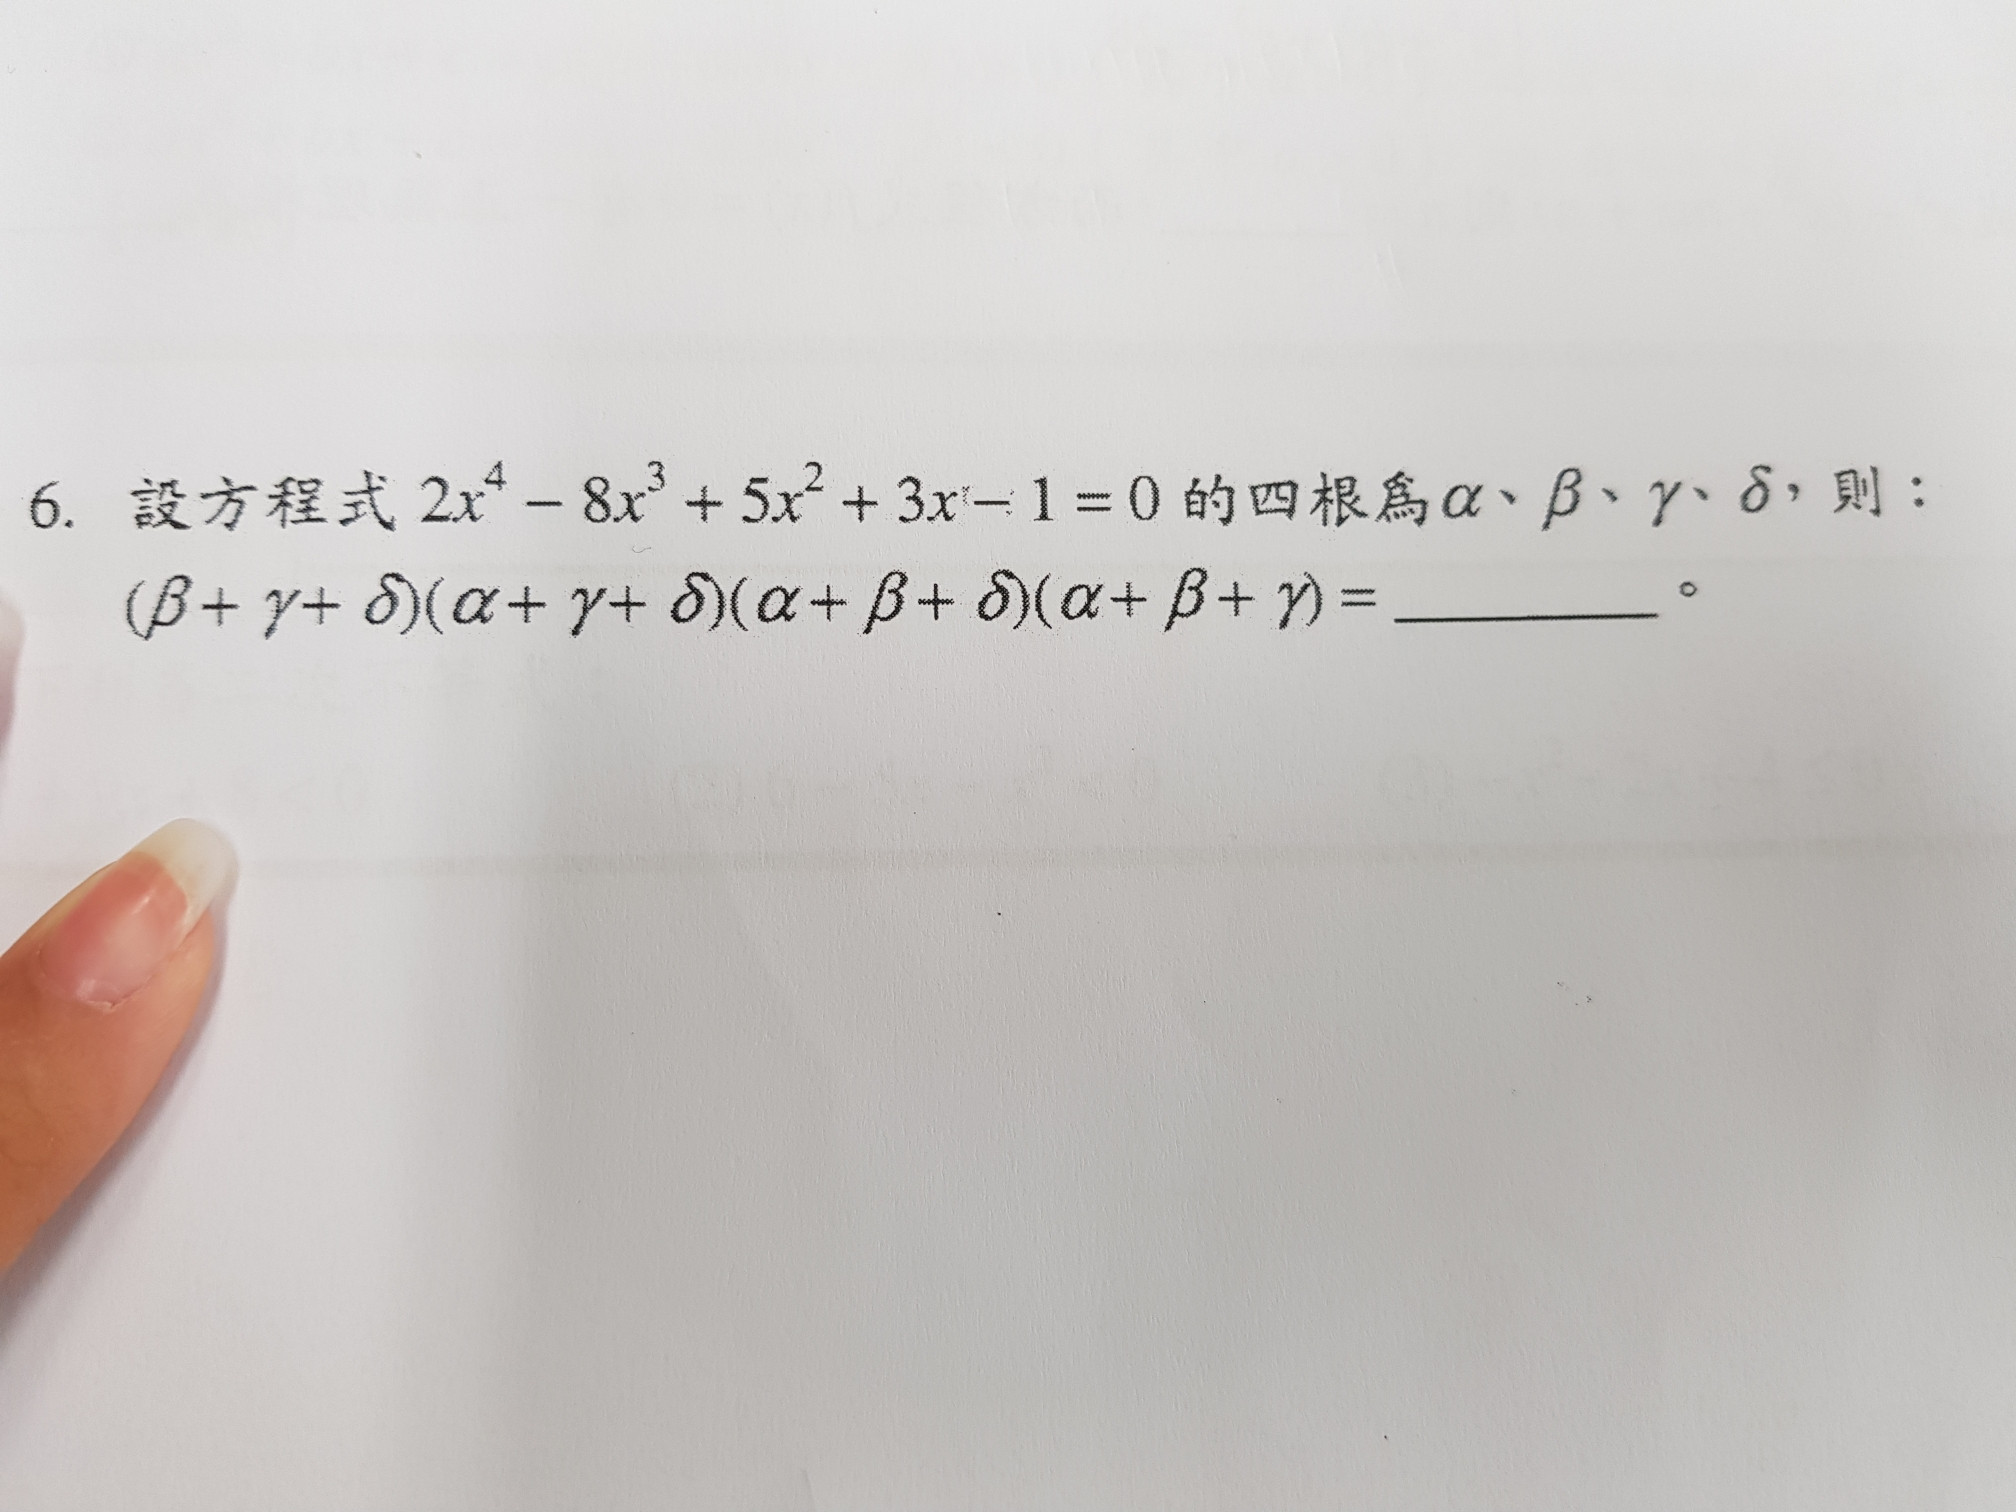 6. 設方程式 2x⁴ − 8x³ + 5x² + 3x − 1 = 0 的四根為α、β、γ、δ，則：
(β + γ + δ)(α + γ + δ)(α + β + δ)(α + β + γ) = ________。